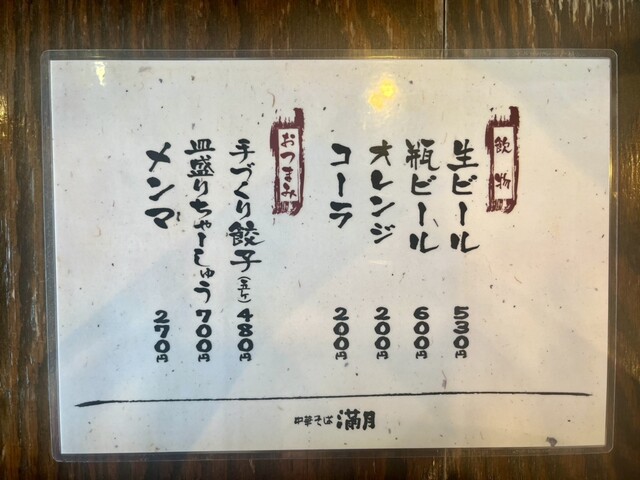 飲物
生ビール 530円
瓶ビール 600円
オレンジ 200円
コーラ 200円
おつまみ
手づくり餃子(五ケ) 480円
皿盛りちゃーしゅう 700円
メンマ 270円
中華そば 満月